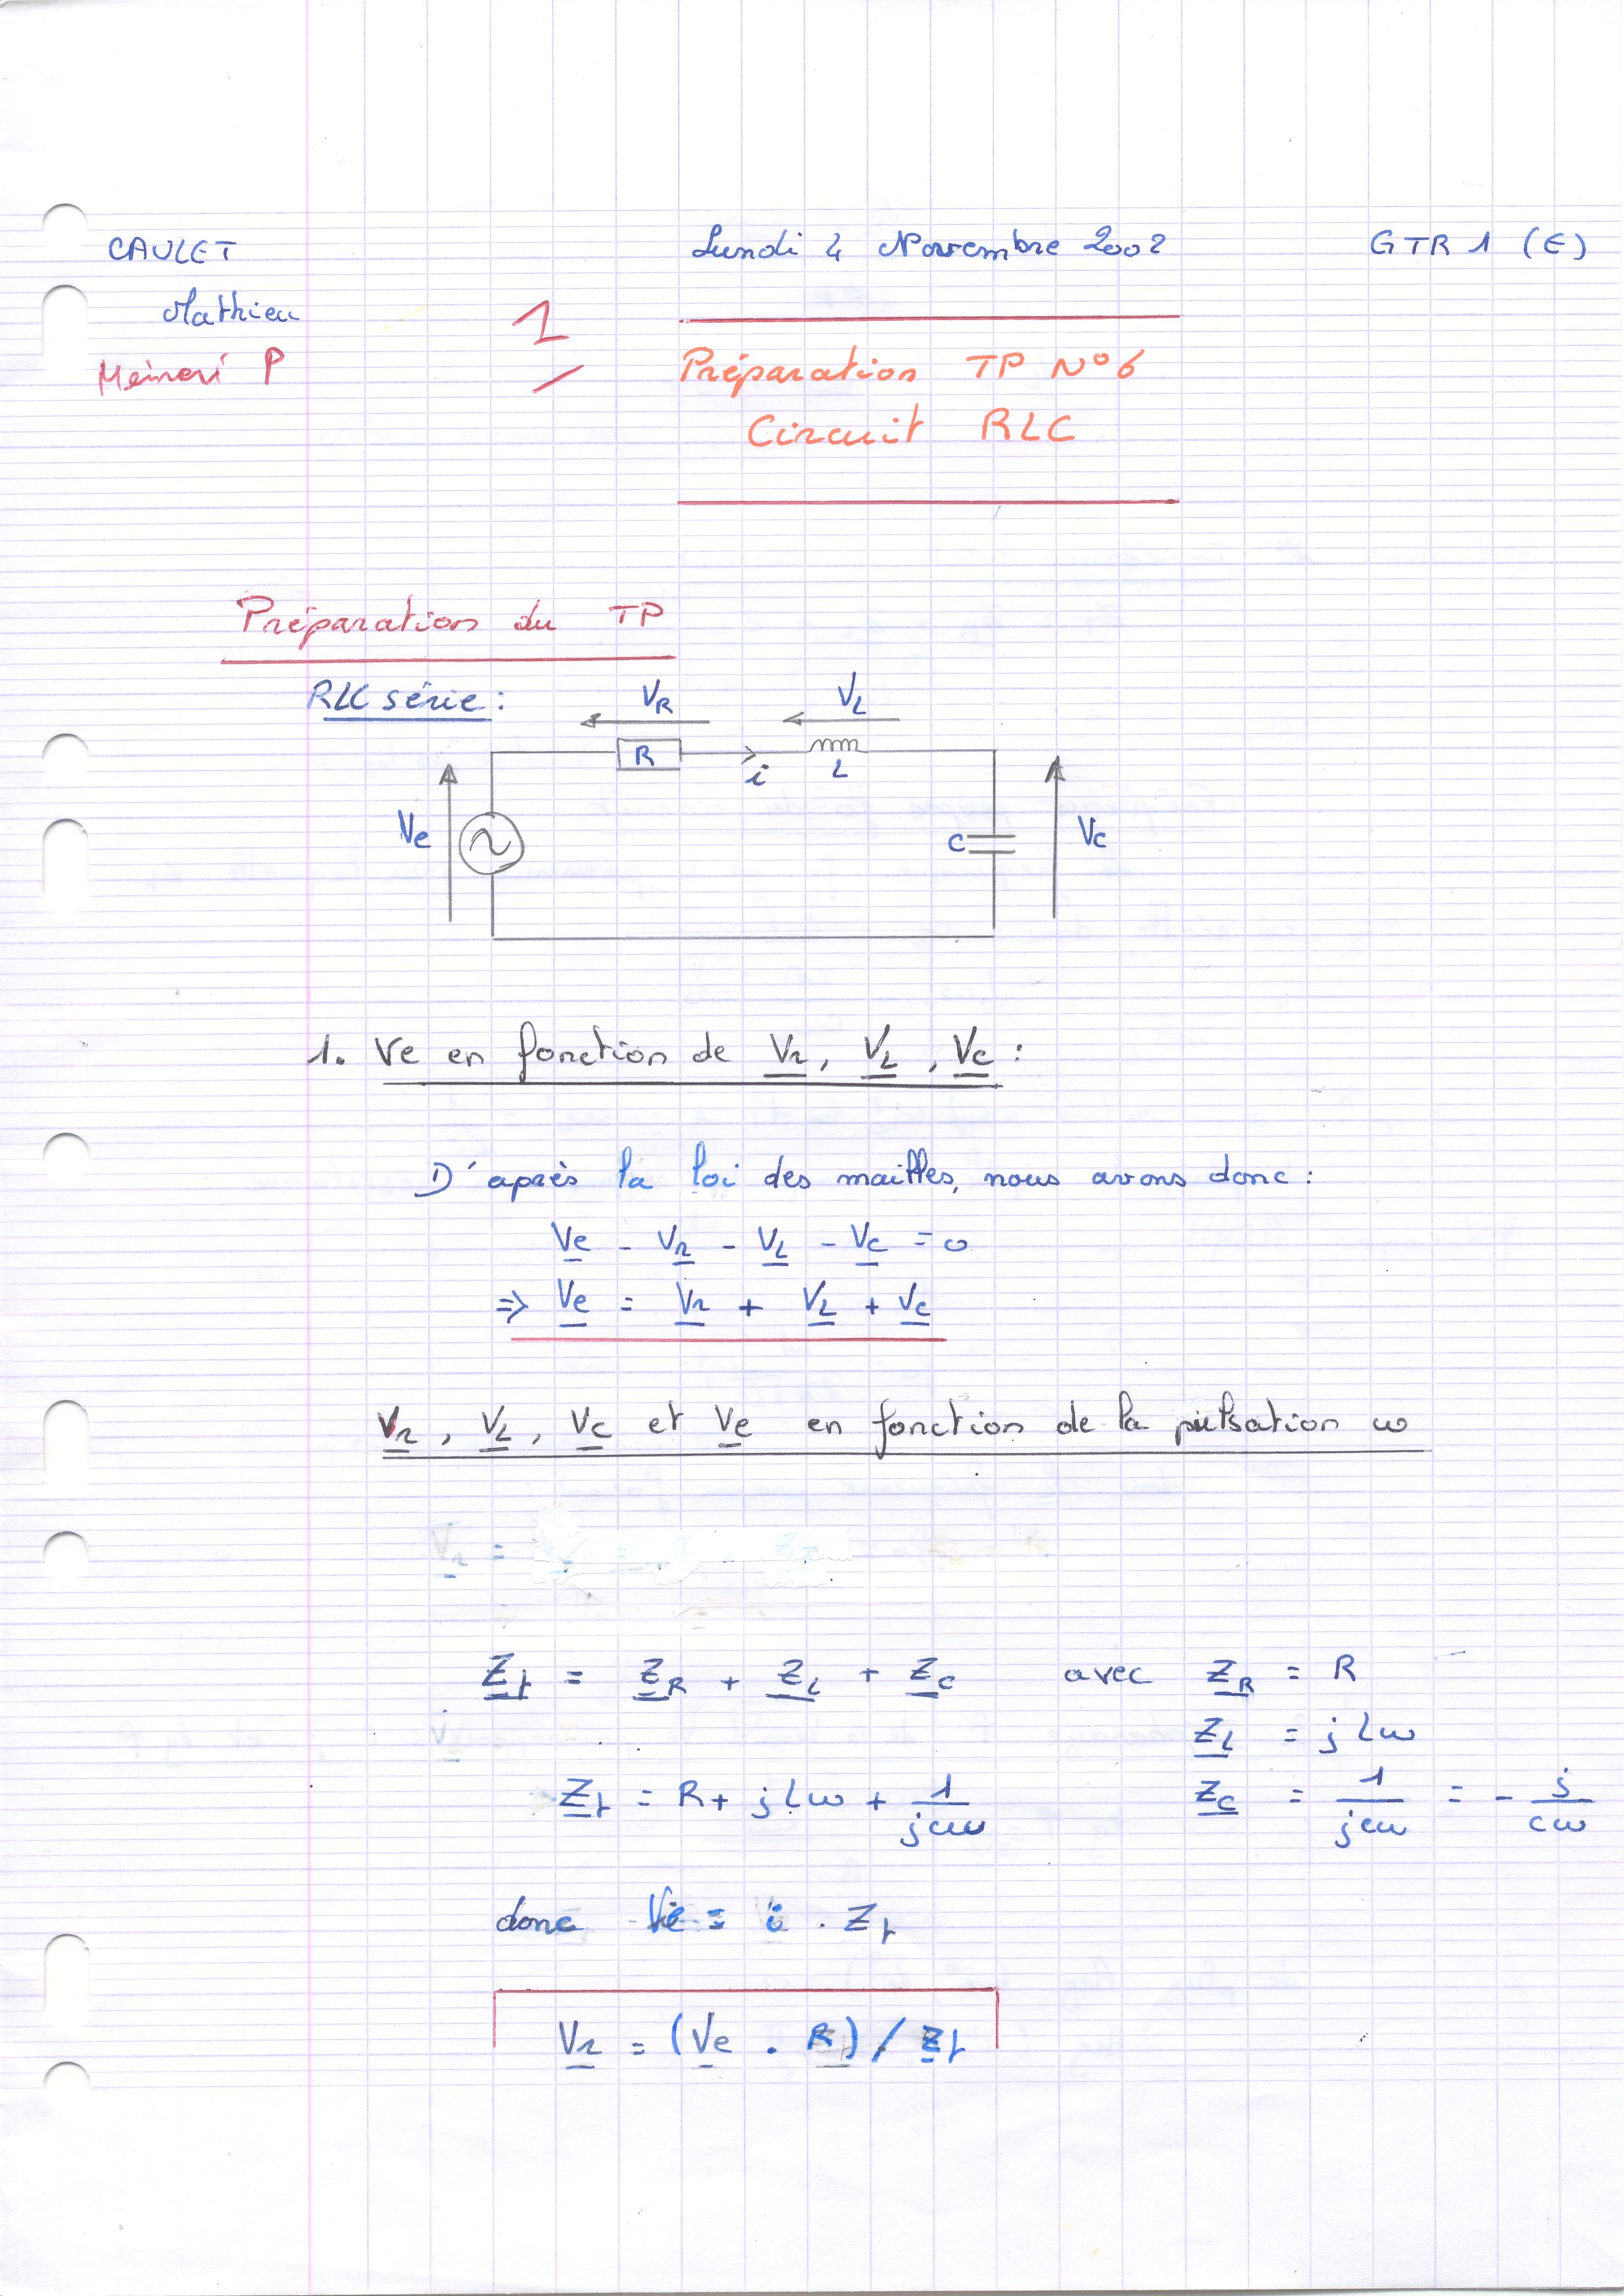 CAULET Lundi 4 Novembre 2002 GTR 1 (E)
Mathieu
P 1
Préparation TP N°6
Circuit RLC
Préparation du TP
RLC série :
VR VL
R i L
Ve C Vc
1. Ve en fonction de Vr, VL, Vc :
D'après la loi des mailles, nous avons donc :
Ve - Vr - VL - Vc = 0
⇒ Ve = Vr + VL + Vc
Vr, VL, Vc et Ve en fonction de la pulsation ω
Vr =
Zt = ZR + ZL + Zc avec ZR = R
ZL = jLω
Zt = R + jLω + 1/jcω Zc = 1/jcω = - j/cω
donc Ve = i . Zt
Vr = (Ve . R) / Zt